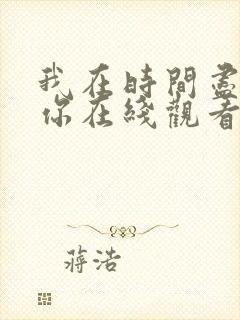 我在時間盡
你在綫觀看
蔣浩